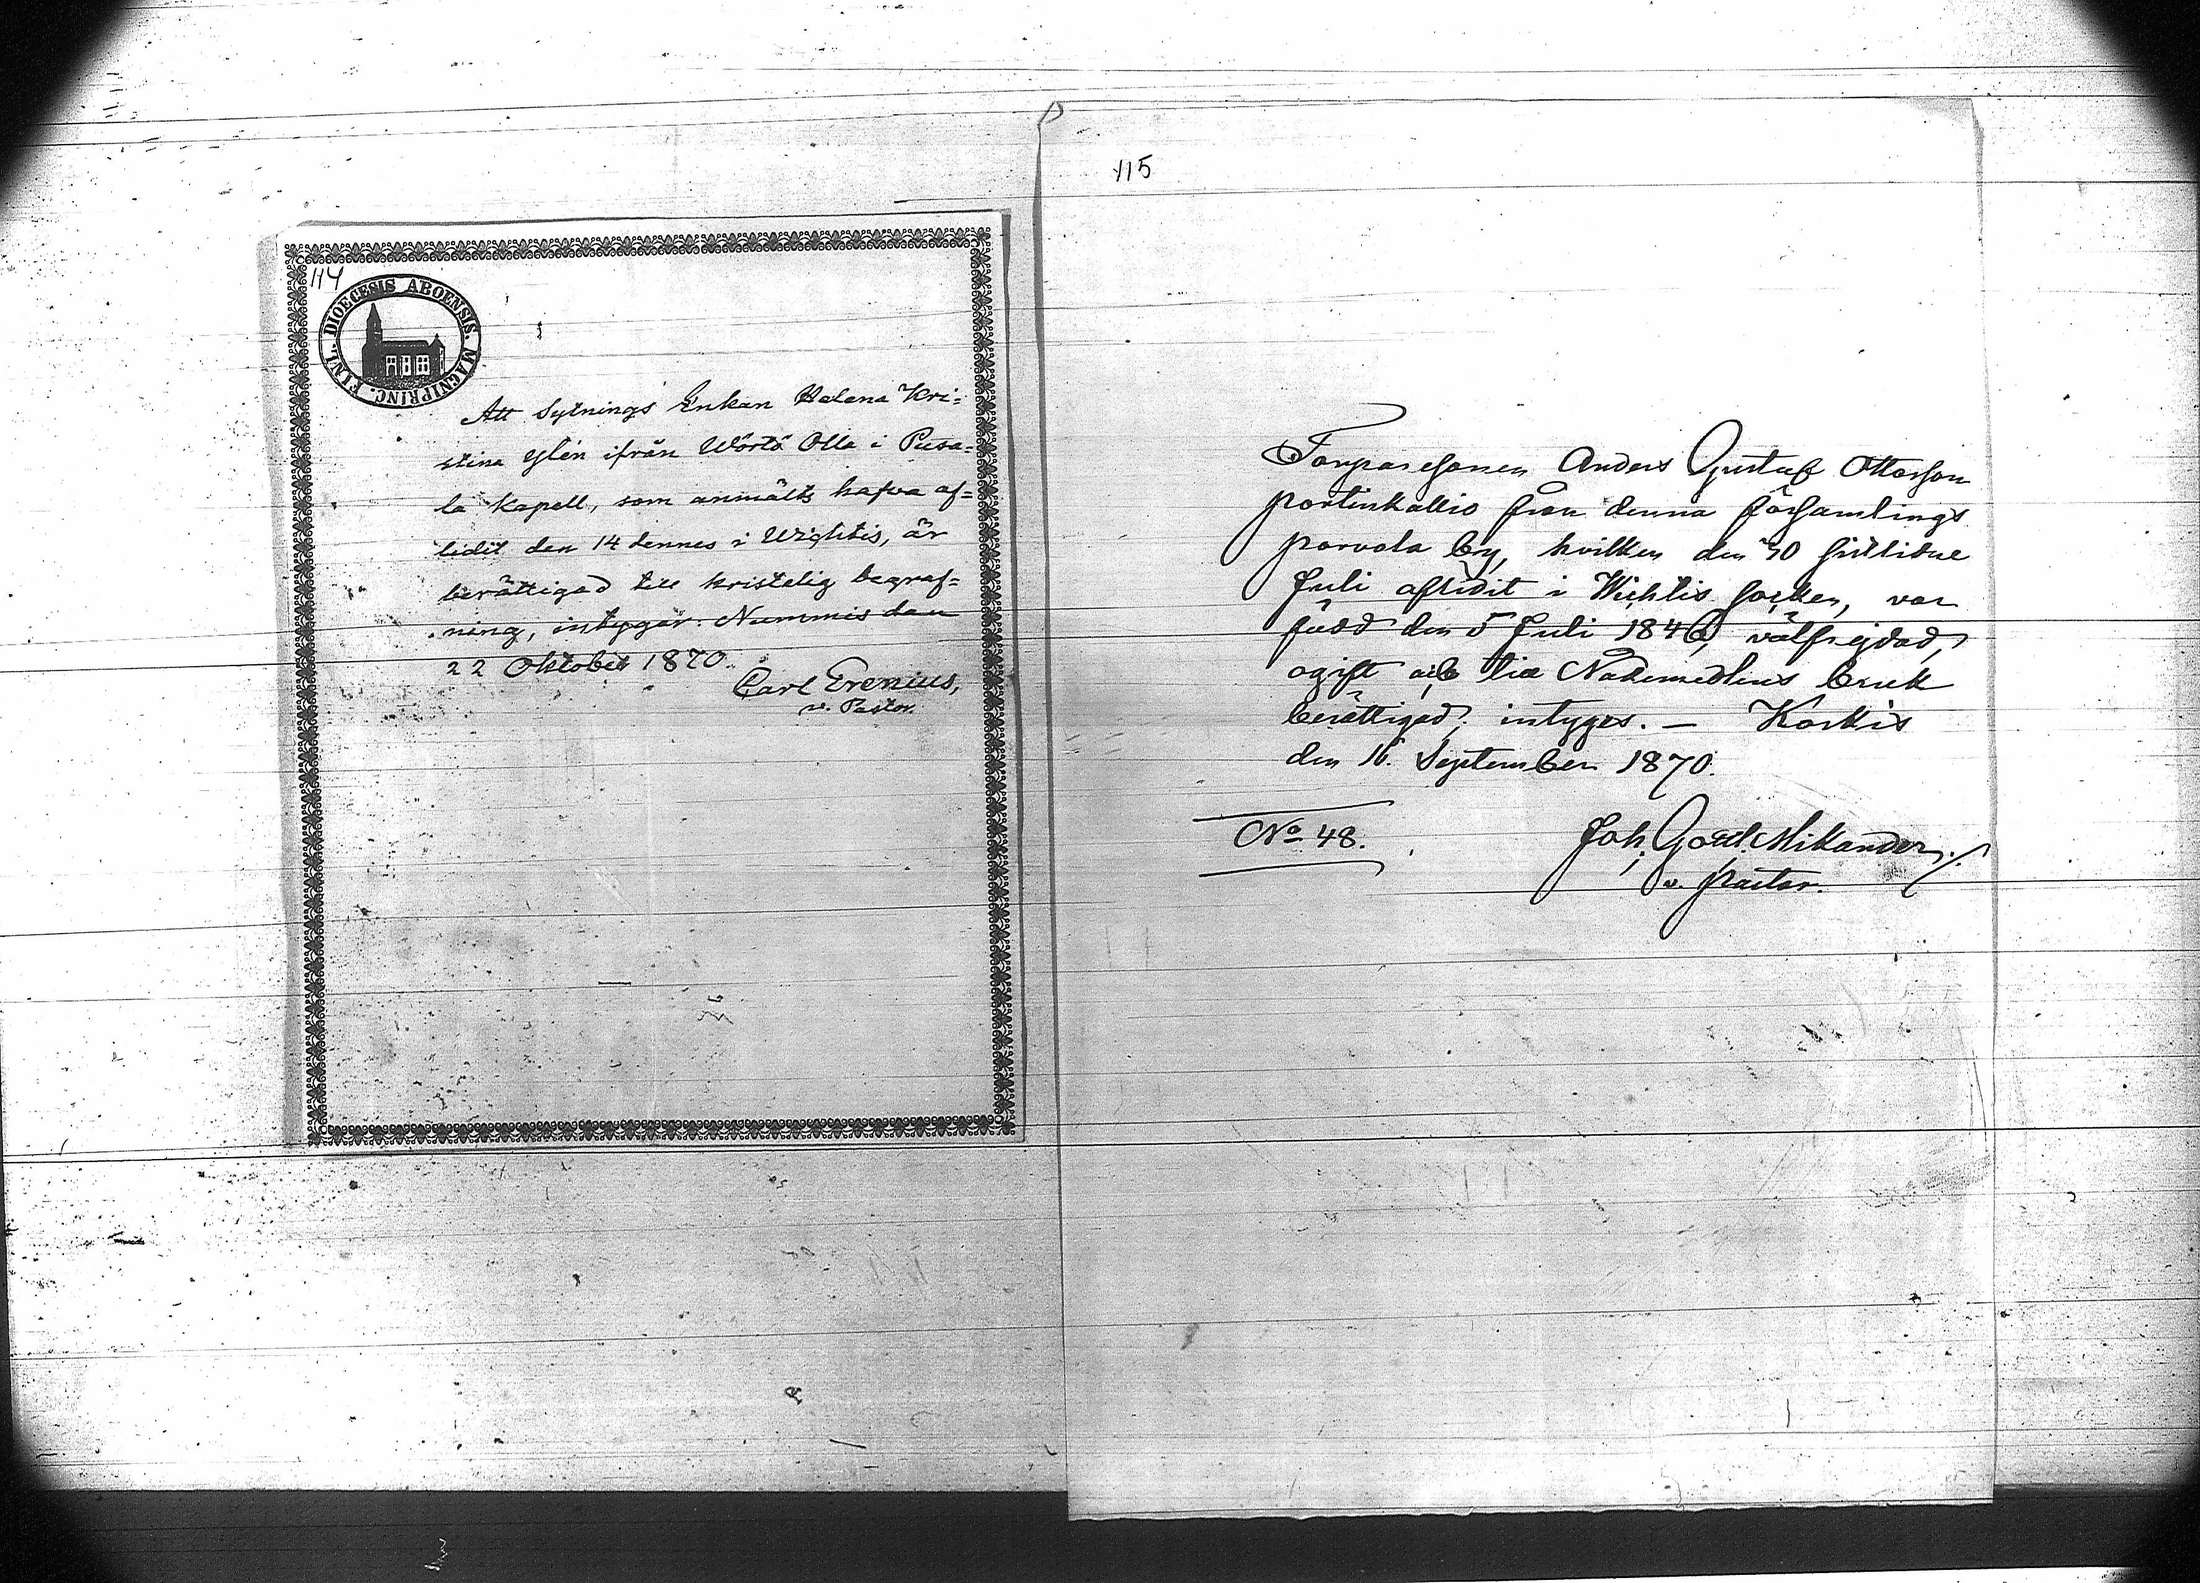 114
DIOECESIS ABOENSIS. MAGNIPRINC. FINL.
Att Sytnings Enkan Helena Kri=
stina Ylén ifrån Wörlö Olla i Pusa=
la Kapell, som anmälts hafva af=
lidit den 14 dennes i Wichtis, är
berättigad till kristelig begraf=
ning, intygar. Nummis dan
22 Oktober 1870.
Carl Grenius,
v. Pastor.
115
Torparesonen Anders Gustaf Ottosson
Portinkallio från denna församlings
Porvola by, hvilken den 30 sistlidne
Juli aflidit i Wichtis socken, var
född den 5 Juli 1846, välfrejdad,
ogift och till Nademedlens bruk
berättigad; intyges. — Korkis
den 16. September 1870.
No 48.
Joh. Gottl. Mikander
v. pastor.